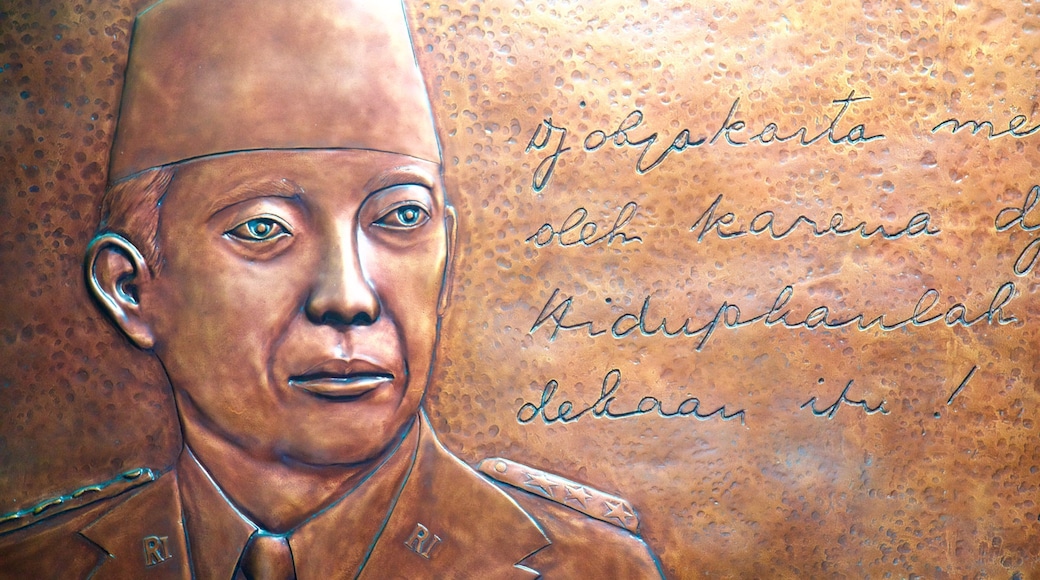 Djokjakarta me
oleh karena dj
Hiduphanlah
dekaan itu !
RI
RI